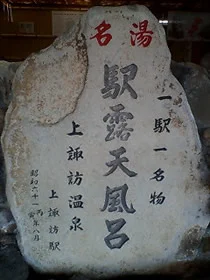 名湯
一駅一名物
駅露天風呂
上諏訪温泉
上諏訪駅
昭和六十一丙寅年八月